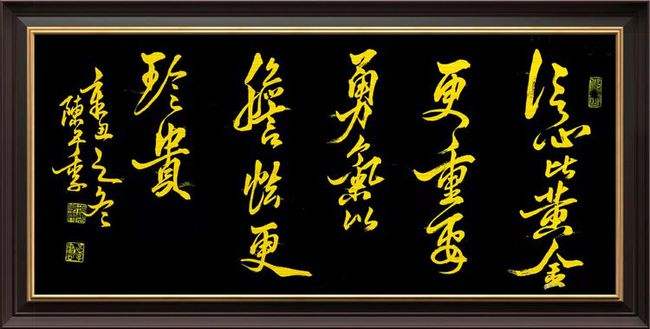 信心比黄金
更重要
勇氣比
膽怯更
珍貴
辛丑之冬
陳